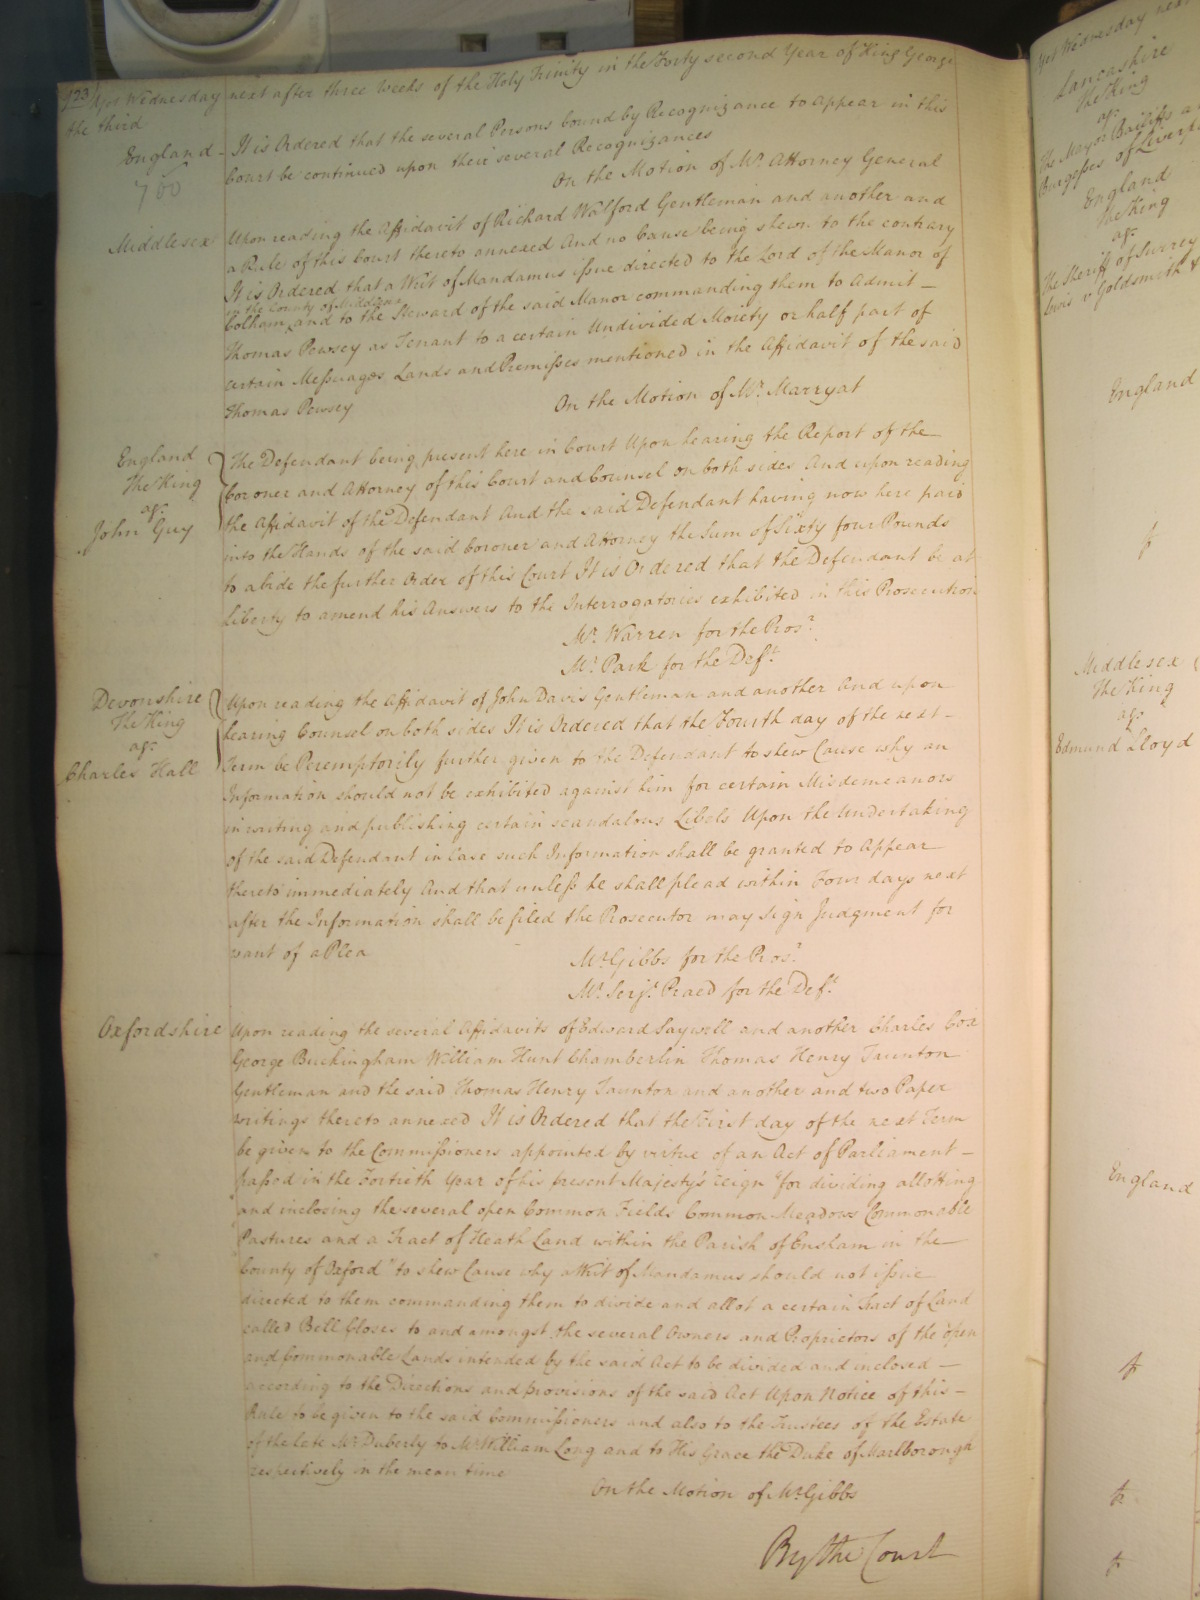 123 Yet Wednesday next after three Weeks of the Holy Trinity in the Forty second Year of King George
the third
England - It is Ordered that the several Persons bound by Recognizance to appear in this
Court be continued upon their several Recognizances
On the Motion of Mr. Attorney General
760
Middlesex Upon reading the Affidavit of Richard Walford Gentleman and another and
a Rule of this Court thereto annexed And no Cause being shewn to the contrary
It is Ordered that a Writ of Mandamus issue directed to the Lord of the Manor of
in the County of Middlesex
Colham and to the Steward of the said Manor commanding them to Admit -
Thomas Pewsey as Tenant to a certain Undivided Moiety or half part of
certain Messuages Lands and Premisses mentioned in the Affidavit of the said
Thomas Pewsey
On the Motion of Mr. Marryat
England
The King
agt.
John Guy
The Defendant being present here in Court Upon hearing the Report of the
Coroner and Attorney of this Court and Counsel on both sides And upon reading
the Affidavit of the Defendant And the said Defendant having now here paid
into the Hands of the said Coroner and Attorney the Sum of Sixty four Pounds
to abide the further Order of this Court It is Ordered that the Defendant be at
liberty to amend his Answers to the Interrogatories exhibited in this Prosecution
Mr. Warren for the Pros.r
Mr. Park for the Def.t
Devonshire
The King
agt.
Charles Hall
Upon reading the Affidavit of John Davis Gentleman and another And upon
hearing Counsel on both sides It is Ordered that the Fourth day of the next -
Term be Peremptorily further given to the Defendant to shew Cause why an
Information should not be exhibited against him for certain Misdemeanors
in writing and publishing certain scandalous Libels Upon the Undertaking
of the said Defendant in Case such Information shall be granted to Appear
thereto immediately And that unless he shall plead within Four days next
after the Information shall be filed the Prosecutor may sign Judgment for
want of a Plea
Mr. Gibbs for the Pros.r
Mr. Serjt. Praed for the Def.t
Oxfordshire Upon reading the several Affidavits of Edward Saywell and another Charles Cox
George Buckingham William Hunt Chamberlin Thomas Henry Taunton
Gentleman and the said Thomas Henry Taunton and another and two Paper
writings thereto annexed It is Ordered that the First day of the next Term
be given to the Commissioners appointed by virtue of an Act of Parliament -
passed in the Fortieth Year of his present Majesty's reign "for dividing allotting
and inclosing the several open Common Fields Common Meadows Commonable
Pastures and a Tract of Heath Land within the Parish of Ensham in the
County of Oxford" to shew Cause why a Writ of Mandamus should not issue
directed to them commanding them to divide and allot a certain Tract of Land
called Bell Closes to and amongst the several Owners and Proprietors of the open
and Commonable Lands intended by the said Act to be divided and inclosed -
according to the Directions and provisions of the said Act Upon Notice of this -
Rule to be given to the said Commissioners and also to the Trustees of the Estate
of the late Mr. Duberly to Mr. William Long and to His Grace the Duke of Marlborough
respectively in the mean time
On the Motion of Mr. Gibbs
By the Court
Yet Wednesday next
Lancashire
The King
agt.
The Mayor Bailiffs a
Burgesses of Liverp
England
The King
agt.
The Sheriff of Surrey
Lewis v Goldsmith &
England
Middlesex
The King
agt.
Edmund Lloyd
England